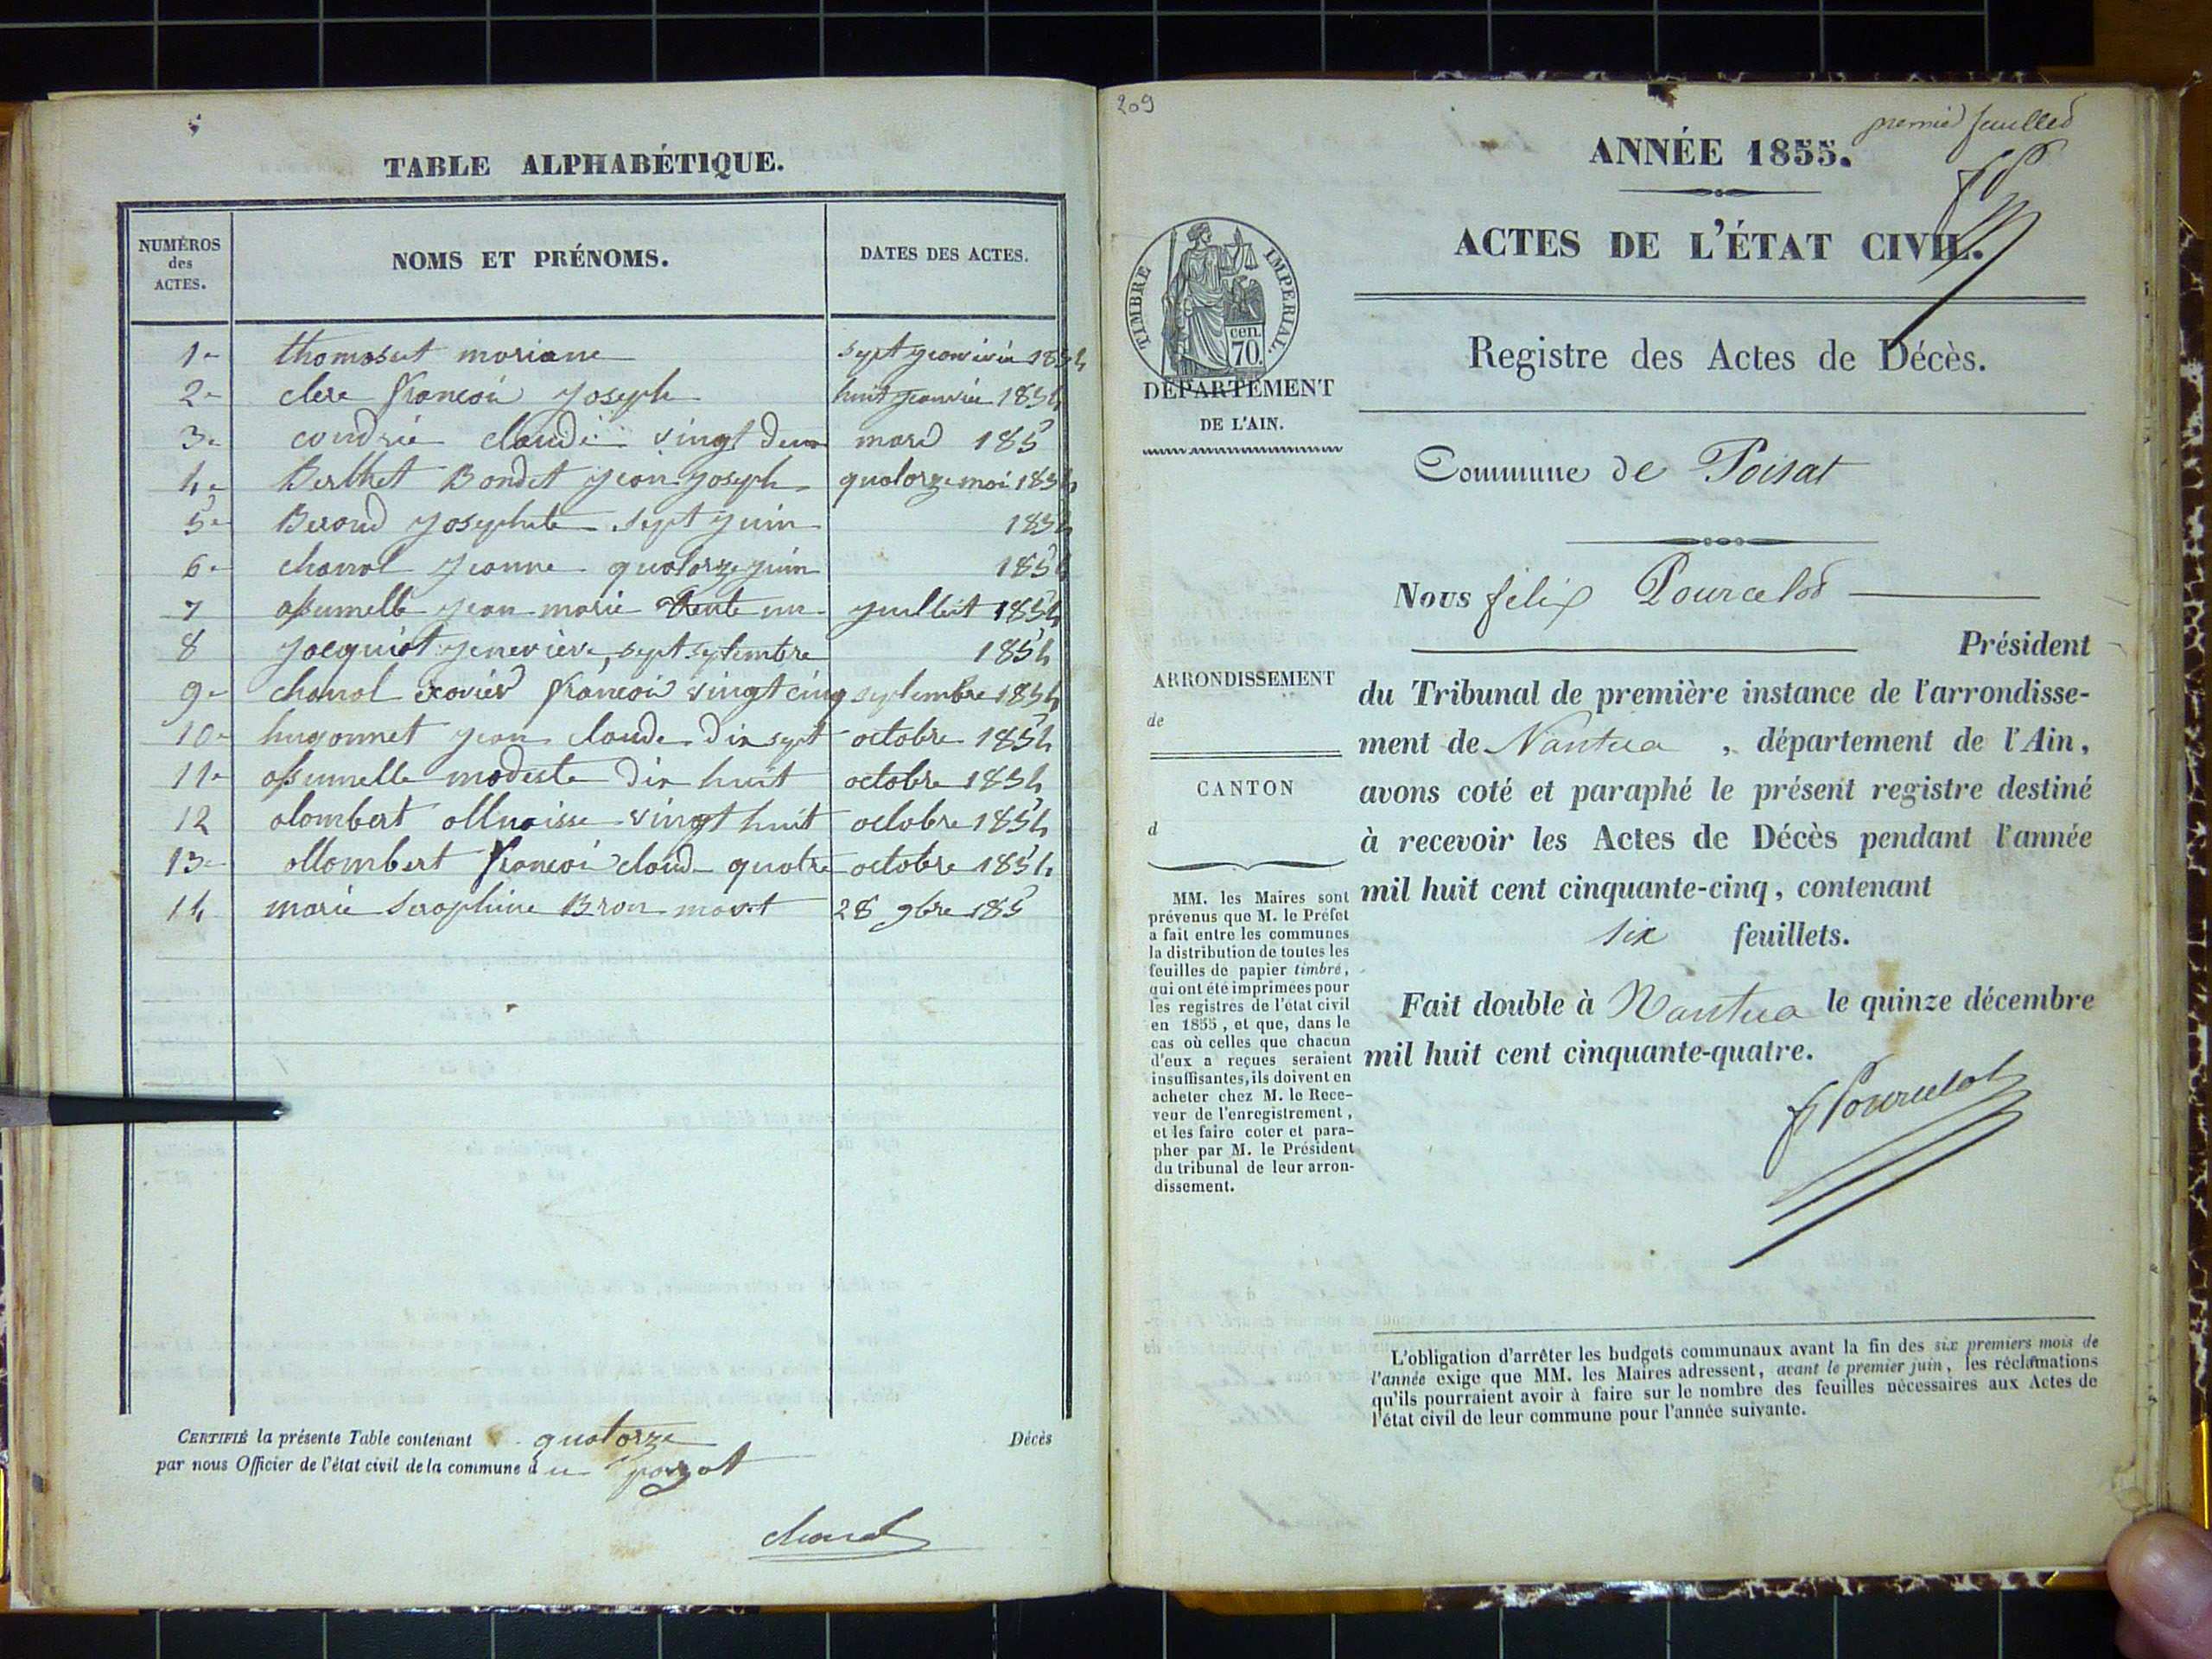 TABLE ALPHABÉTIQUE.
NUMÉROS des ACTES. NOMS ET PRÉNOMS. DATES DES ACTES.
1 thomasset mariane sept janvier 1854
2 clere françoi Joseph huit janvier 1854
3 coudrie claude vingt deux mard 185
4 Berthet Bondet jean joseph quatorze mai 1854
5 Beroud Josephete sept juin 1854
6 chanal jeanne quatorze juin 1854
7 assumelle jean marie trente un juillet 1854
8 jacquiot jenevieve, sept septembre 1854
9 chanal xavier françoi vingt cinq septembre 1854
10 hugonnet jean claude dix sept octobre 1854
11 assumelle modeste dix huit octobre 1854
12 alombert vingt huit octobre 1854
13 allombert françoi claud quatre octobre 1854
14 marie seraphine Bron mort 28 9bre 185
CERTIFIÉ la présente Table contenant quatorze Décès
par nous Officier de l'état civil de la commune d
chanal
209
premier feuillet
ANNÉE 1855.
ACTES DE L'ÉTAT CIVIL.
TIMBRE IMPERIAL.
cen.
70.
Registre des Actes de Décès.
DÉPARTEMENT
DE L'AIN.
Commune de Poisat
Nous felix Pourcelot
Président
ARRONDISSEMENT
de
CANTON
d
du Tribunal de première instance de l'arrondisse-
ment de Nantua, département de l'Ain,
avons coté et paraphé le présent registre destiné
à recevoir les Actes de Décès pendant l'année
mil huit cent cinquante-cinq, contenant
six feuillets.
Fait double à Nantua le quinze décembre
mil huit cent cinquante-quatre.
F Pourcelot
MM. les Maires sont
prévenus que M. le Préfet
a fait entre les communes
la distribution de toutes les
feuilles de papier timbré,
qui ont été imprimées pour
les registres de l'état civil
en 1855, et que, dans le
cas où celles que chacun
d'eux a reçues seraient
insuffisantes, ils doivent en
acheter chez M. le Rece-
veur de l'enregistrement,
et les faire coter et para-
pher par M. le Président
du tribunal de leur arron-
dissement.
L'obligation d'arrêter les budgets communaux avant la fin des six premiers mois de
l'année exige que MM. les Maires adressent, avant le premier juin, les réclamations
qu'ils pourraient avoir à faire sur le nombre des feuilles nécessaires aux Actes de
l'état civil de leur commune pour l'année suivante.